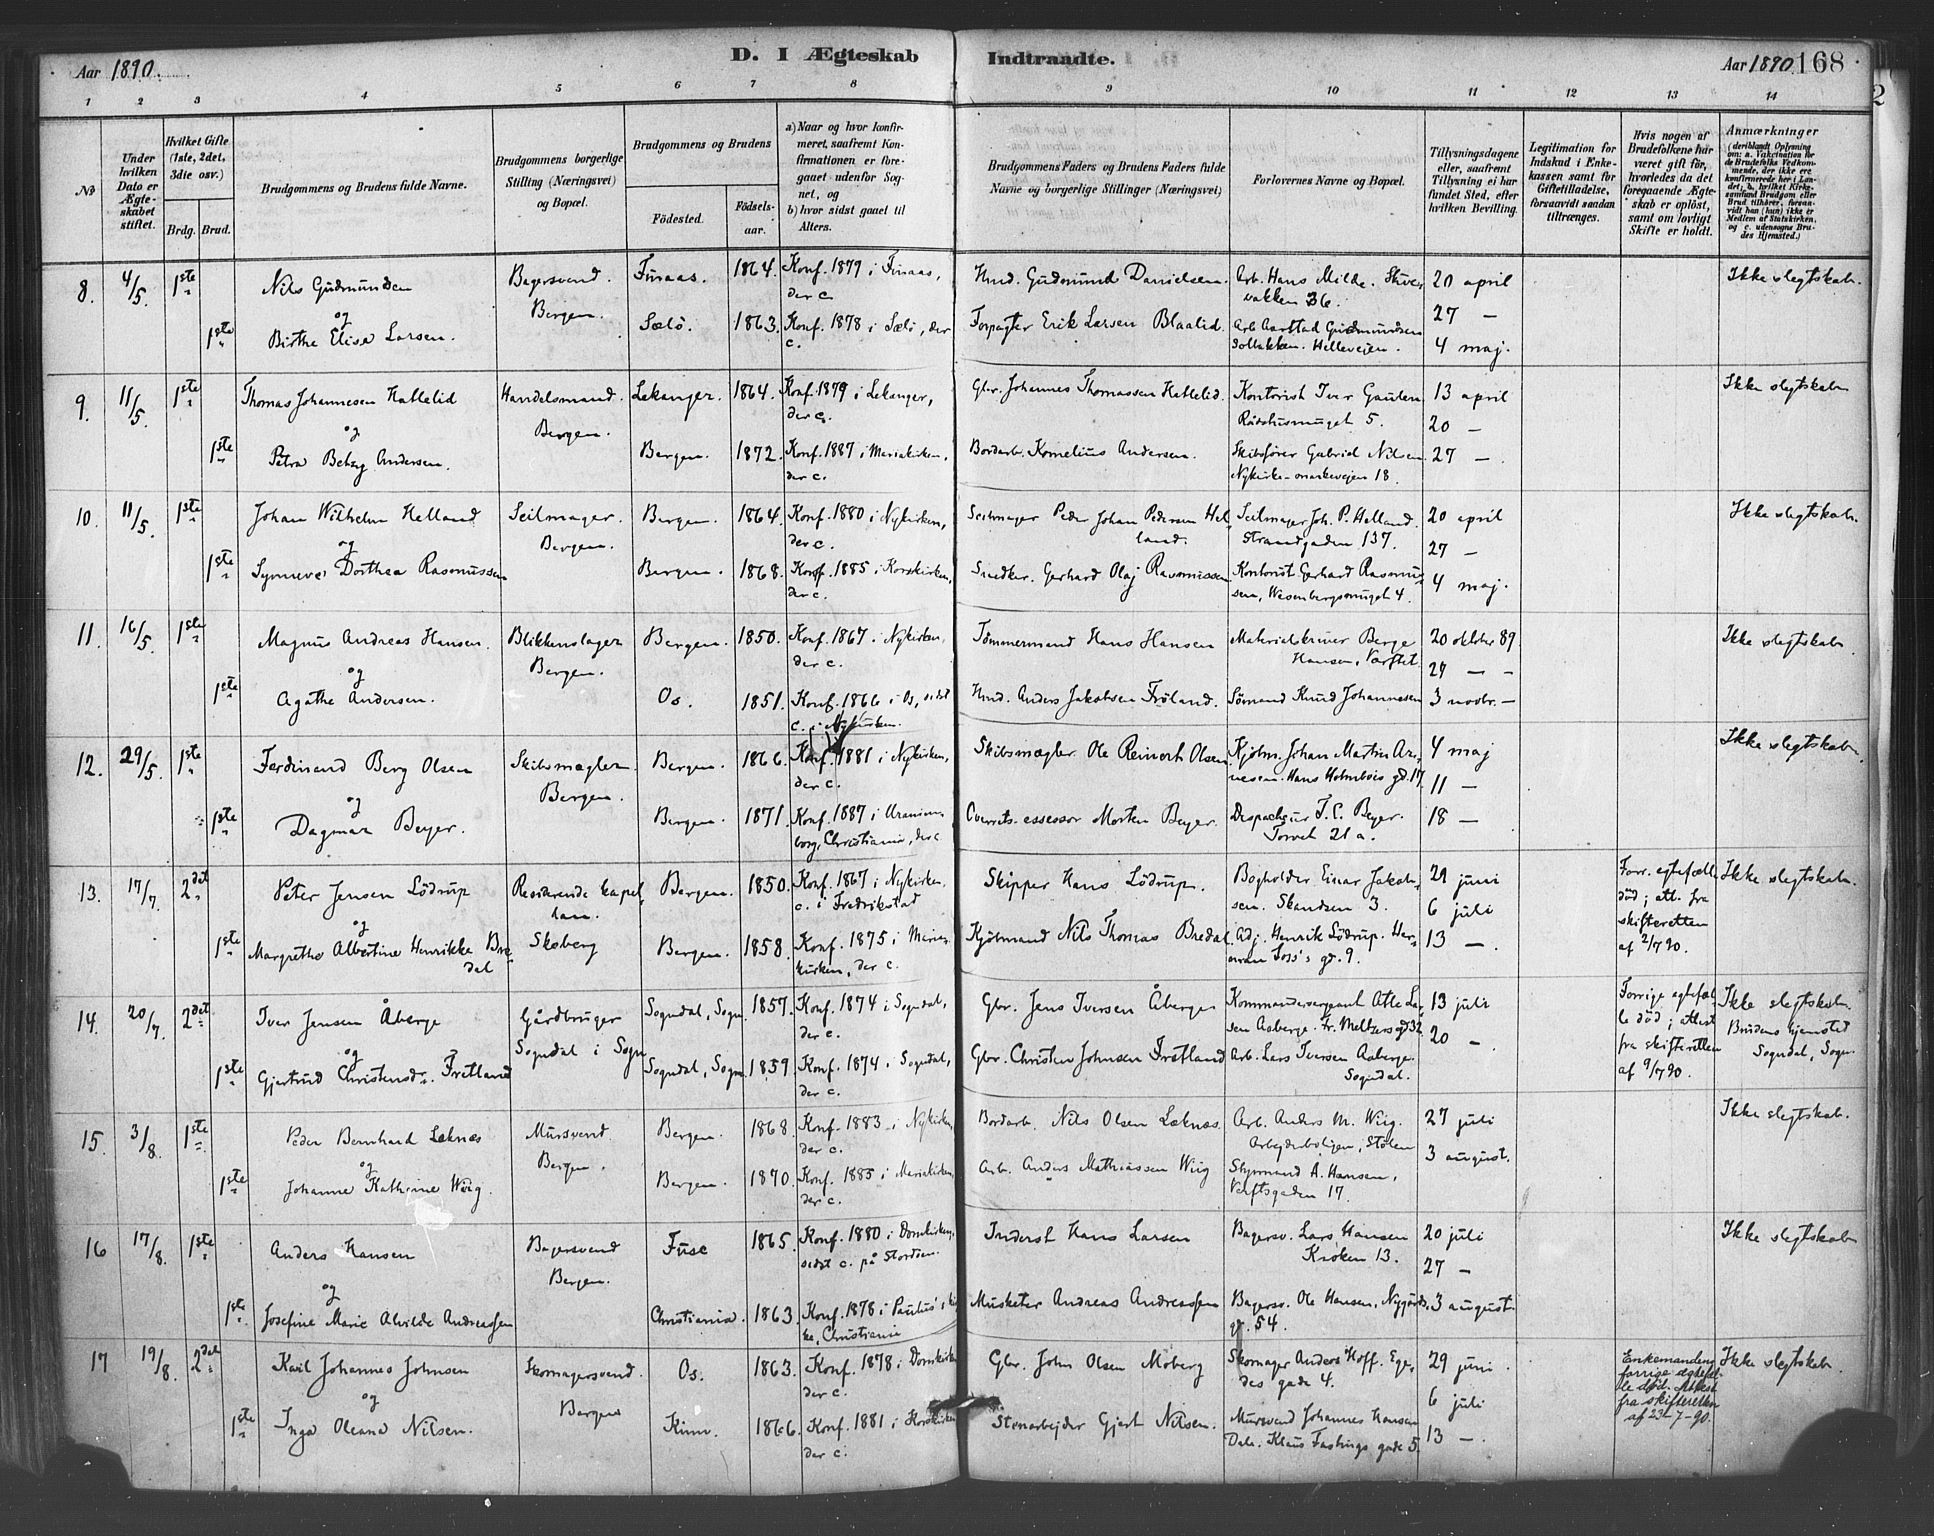 Aar 1890.
D. I Ægteskab Indtraadte.
Aar 1890. 168
1 2 3 4 5 6 7 8 9 10 11 12 13 14
No
Under hvilken Dato er Ægteskabet stiftet.
Hvilket Gifte (1ste, 2det, 3die osv.)
Brdg. Brud.
Brudgommens og Brudens fulde Navne.
Brudgommens borgerlige Stilling (Næringsvei) og Bopæl.
Brudgommens og Brudens
Fødested. Fødselsaar.
a) Naar og hvor konfirmeret, saafremt Konfirmationen er foregaaet udenfor Sognet, og
b) hvor sidst gaaet til Alters.
Brudgommens Faders og Brudens Faders fulde Navne og borgerlige Stillinger (Næringsvei)
Forlovernes Navne og Bopæl.
Tillysningsdagene eller, saafremt Tillysning ei har fundet Sted, efter hvilken Bevilling.
Legitimation for Indskud i Enkekassen samt for Giftetilladelse, forsaavidt saadan tiltrænges.
Hvis nogen af Brudefolkene har været gift før, hvorledes da det foregaaende Ægteskab er opløst, samt om lovligt Skifte er holdt.
Anmærkninger (deriblandt Oplysning om: a. Vaccination for de Brudefolks Vedkommende, der ikke ere konfirmerede her i Landet, b. hvilket Kirkesamfund Brudgom eller Brud tilhører, forsaavidt han (hun) ikke er Medlem af Statskirken, og c. udensogns Brudes Hjemsted.)
8. 4/5. 1ste Nils Gudmundsen Bagersvend. Finaas. 1864. Konf. 1879 i Finaas, Hmd. Gudmund Danielsen. Arb. Hans Milde. Skive- 20 april Ikke slegtskab.
og Bergen. der c. bakken 36. 27 —
1ste Birthe Elise Larsen. Sælö. 1863. Konf. 1878 i Sælö, der Forpagter Erik Larsen Blaalid. Arb. Aarstad Gudmundsen
c. Solbakken. Hellevejen. 4 maj.
9. 11/5. 1ste Thomas Johannesen Hattelid Handelsmand. Lekanger. 1864. Konf. 1879 i Lekanger, Gbr. Johannes Thomassen Hattelid. Kontorist Iver Gaulen 13 april Ikke slegtskab
og Bergen. der c. Raadhusmuget 5. 20 —
1ste Petra Betzy Andersen. Bergen. 1872. Konf. 1887 i Mariakirken, Bordarb. Kornelius Andersen. Skibsfører Gabriel Nilsen 27 —.
der c. Nykirke-markevejen 18.
10. 11/5. 1ste Johan Wilhelm Helland Seilmager. Bergen. 1864. Konf. 1880 i Nykirken, Seilmager Peder Johan Pedersen Hel- Seilmager Joh. P. Helland. 20 april Ikke slegtskab.
og Bergen. der c. land. Strandgaden 137. 27 —
1ste Synneve Dorthea Rasmussen Bergen. 1868. Konf. 1885 i Korskirken, Snedker. Gerhard Olaj Rasmussen Kontorist Gerhard Rasmus- 4 maj.
der c. sen, Wesenbergsmuget 4.
11. 16/5. 1ste Magnus Andreas Hansen. Blikkenslager Bergen. 1850. Konf. 1867 i Nykirken, Tömmermand Hans Hansen Materialskriver Berge 20 oktober 89. Ikke slegtskab.
og Bergen. der c. Hansen, Værftet 27 — —
1ste Agathe Andersen. Os. 1851. Konf. 1866 i Os, sidst Hmd. Anders Jakobsen Fröland. Sömand Knud Johannesen 3 novbr. —
c. i Nykirken.
12. 29/5. 1ste Ferdinand Berg Olsen Skibsmægler. Bergen. 1866. Konf. 1881 i Nykirken, Skibsmægler Ole Reinert Olsen. Kjøbm. Johan Martin Ar- 4 maj Ikke slegtskab.
og Bergen. der c. nesen. Hans Holmboes gd. 17. 11 —
1ste Dagmar Beyer. Bergen. 1871. Konf. 1887 i Uranien- Overrets-assessor Morten Beyer. Despacheur F. C. Beyer. 18 —
borg, Christiania, der c Torvet 21 a.
13. 17/7. 2det Peter Jensen Lödrup Residerende kapel- Bergen. 1850. Konf. 1867 i Nykirken, Skipper Hans Lödrup. Bogholder Einar Jakob- 29 juni Forr. egtefælle Ikke slegtskab.
og lan. c. i Fredrikstad sen. Skandsen 3. 6 juli död; att. fra
1ste Margrethe Albertine Henrikke Bre- Skeberg Bergen. 1858. Konf. 1875 i Marie- Kjöbmand Nils Thomas Bredal. Adj. Henrik Lödrup. Her- 13 —. skifteretten
dal kirken, der c. man Foss's gd. 9. af 2/7 90.
14. 20/7. 2det Iver Jensen Åberge Gårdbruger Sogndal, Sogn. 1857. Konf. 1874 i Sogndal, Gbr. Jens Iversen Åberge Kommandersergeant Atle Lar- 13 juli Forrige egtefæl- Ikke slegtskab.
og Sogndal i Sogn der c. sen Aaberge. Fr. Meltzers gd 32. 20 —. le död; attest Brudens hjemsted
1ste Gjertrud Christensdr. Fretland Sogndal, Sogn. 1859. Konf. 1874 i Sogndal, Gbr. Christen Johnsen Fretland Arb. Lars Iversen Aaberge. fra skifteretten Sogndal, Sogn.
der c. Sogndal. af 9/7 90.
15. 3/8. 1ste Peder Bernhard Leknæs Mursvend Bergen. 1868. Konf. 1883 i Nykirken, Bordarb. Nils Olsen Leknæs. Arb. Anders M. Wiig. 27 juli Ikke slegtskab.
og Bergen. der c. Arbejderboligen, Stölen 3 august.
1ste Johanne Kathrine Wiig. Bergen. 1870. Konf. 1885 i Mariekirken, Arb. Anders Mathiassen Wiig Styrmand A. Hansen,
der c. Verftsgaden 17.
16 17/8. 1ste Anders Hansen Bagersvend Fuse 1865. Konf. 1880 i Domkirken, Inderst Hans Larsen Bagersv. Lars Hansen 20 juli Ikke slegtskab
og Bergen. sidst c. på Stordöen. Kroken 13. 27 —
1ste Josefine Marie Alvilde Andreassen Christiania. 1863. Konf. 1878 i Paulus' kir- Musketer Andreas Andreassen Bagersv. Ole Hansen, Nygårds- 3 august.
ke, Christiania gd. 54.
17 19/8. 2det Karl Johannes Johnsen Skomagersvend. Os. 1863. Konf. 1878 i Domkirken Gbr. John Olsen Moberg Skomager Anders Hoff. Ege- 29 juni Enkemandens Ikke slegtskab
og Bergen der c. des gade 4. 6 juli forrige ægtefæl-
1ste Inga Oleana Nilsen. Kinn. 1866. Konf. 1881 i Korskirken Stenarbejder Gjert Nilsen. Mursvend Johannes Hansen 13 —. le död. Attest
der c. Dale. Klaus Fastings gade 5. fra skifteretten
af 23-7-90.
2